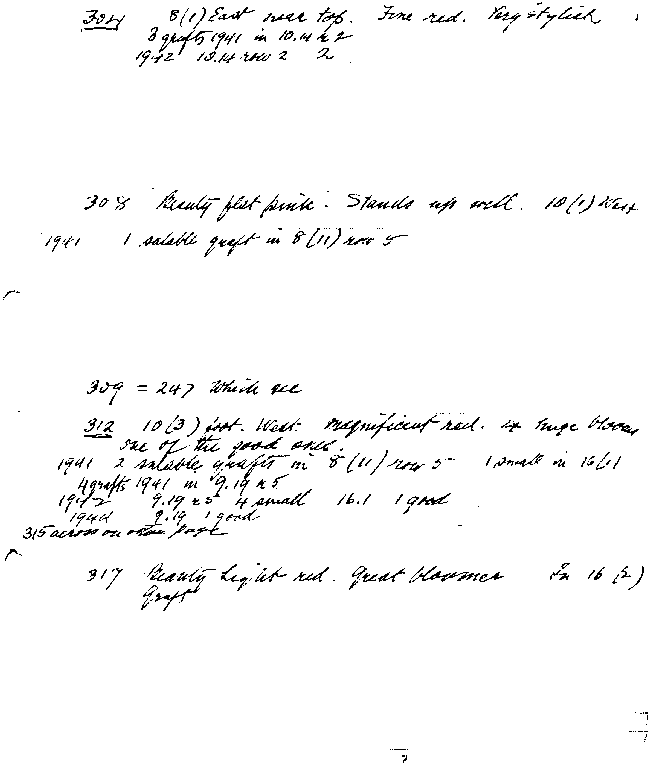 304 8(1) East near top. Fine red. Very stylish
3 grafts 1941 in 10.14 r 2
1942 10.14 row 2 2
308 Beauty flat pink. Stands up well. 10(1) West
1941 1 salable graft in 8(11) row 5
309 = 247 Which see
312 10(3) foot. West. Magnificent red. huge blooms
one of the good ones.
1941 2 salable grafts in 8(11) row 5 1 small in 16(1)
4 grafts 1941 in 9.19 r 5
1942 9.19 r 5 4 small 16.1 1 good
1944 9.19 1 good
315 across on page
317 Beauty Light red. Great bloomer In 16(2)
Graft